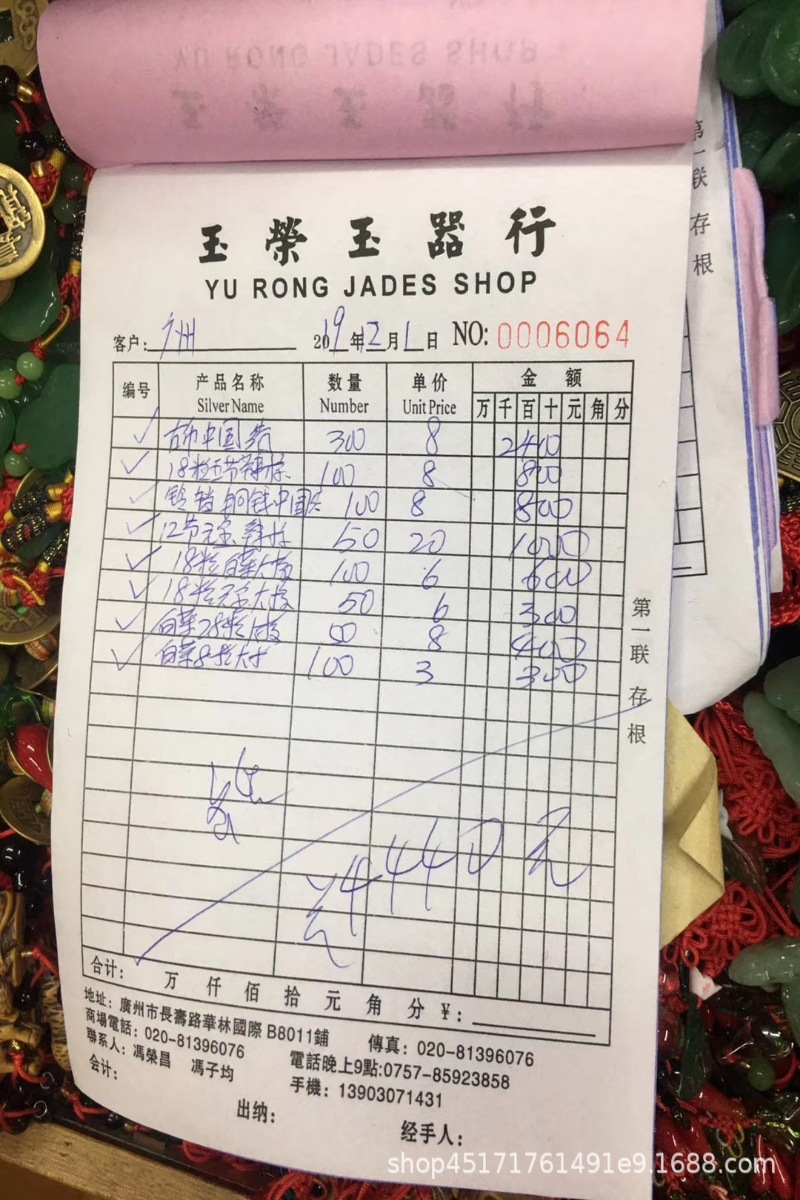 YU RONG JADES SHOP
玉榮玉器行
玉榮玉器行
YU RONG JADES SHOP
客户: 广州 2019年12月1日 NO: 0006064
编号 产品名称 Silver Name 数量 Number 单价 Unit Price 金额 万 千 百 十 元 角 分
古币中国 300 8 2400
18粒 100 8 800
中国 100 8 800
12节元宝 50 20 1000
18粒白菜大 100 6 600
18粒元宝大 50 6 300
白菜28粒 50 8 400
白菜8粒大 100 3 300
4440元
合计: 万 仟 佰 拾 元 角 分 ¥:
地址: 廣州市長壽路華林國際 B8011鋪 傳真: 020-81396076
商場電話: 020-81396076 電話晚上9點:0757-85923858
聯系人: 馮榮昌 馮子均 手機: 13903071431
会计: 出纳: 经手人:
第一联 存根
第一联 存根
shop45171761491e9.1688.com